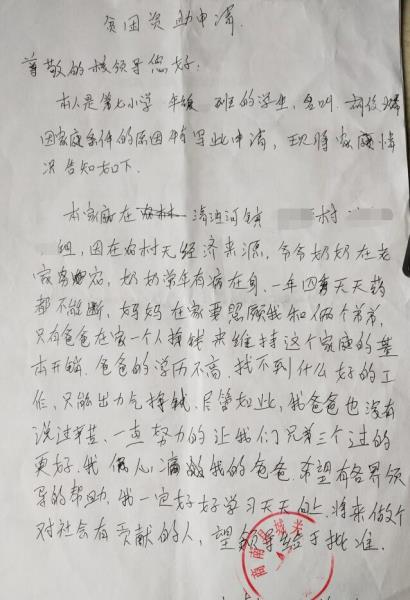 贫困资助申请
尊敬的校领导您好:
本人是第七小学 年级 班的学生,名叫
因家庭条件的原因 写此申请,现将家庭情
况告知如下.
本家庭在 清油河镇 村
组,因在农村无经济来源,爷爷奶奶在老
家务农,奶奶常年有病在身.一年四季天天药
都不敢断,妈妈在家要照顾我和俩个弟弟,
只有爸爸在家一个人挣钱来维持这个家庭的基
本开销.爸爸的学历不高.找不到什么好的工
作,只能出力气挣钱.尽管如此,我爸爸也没有
说过辛苦.一直努力的让我们兄弟三个过的
更好.我 心痛 我的爸爸.希望有各界领
导的帮助.我一定好好学习天天向上.将来做个
对社会有贡献的人,望领导给于批准.
商南县城